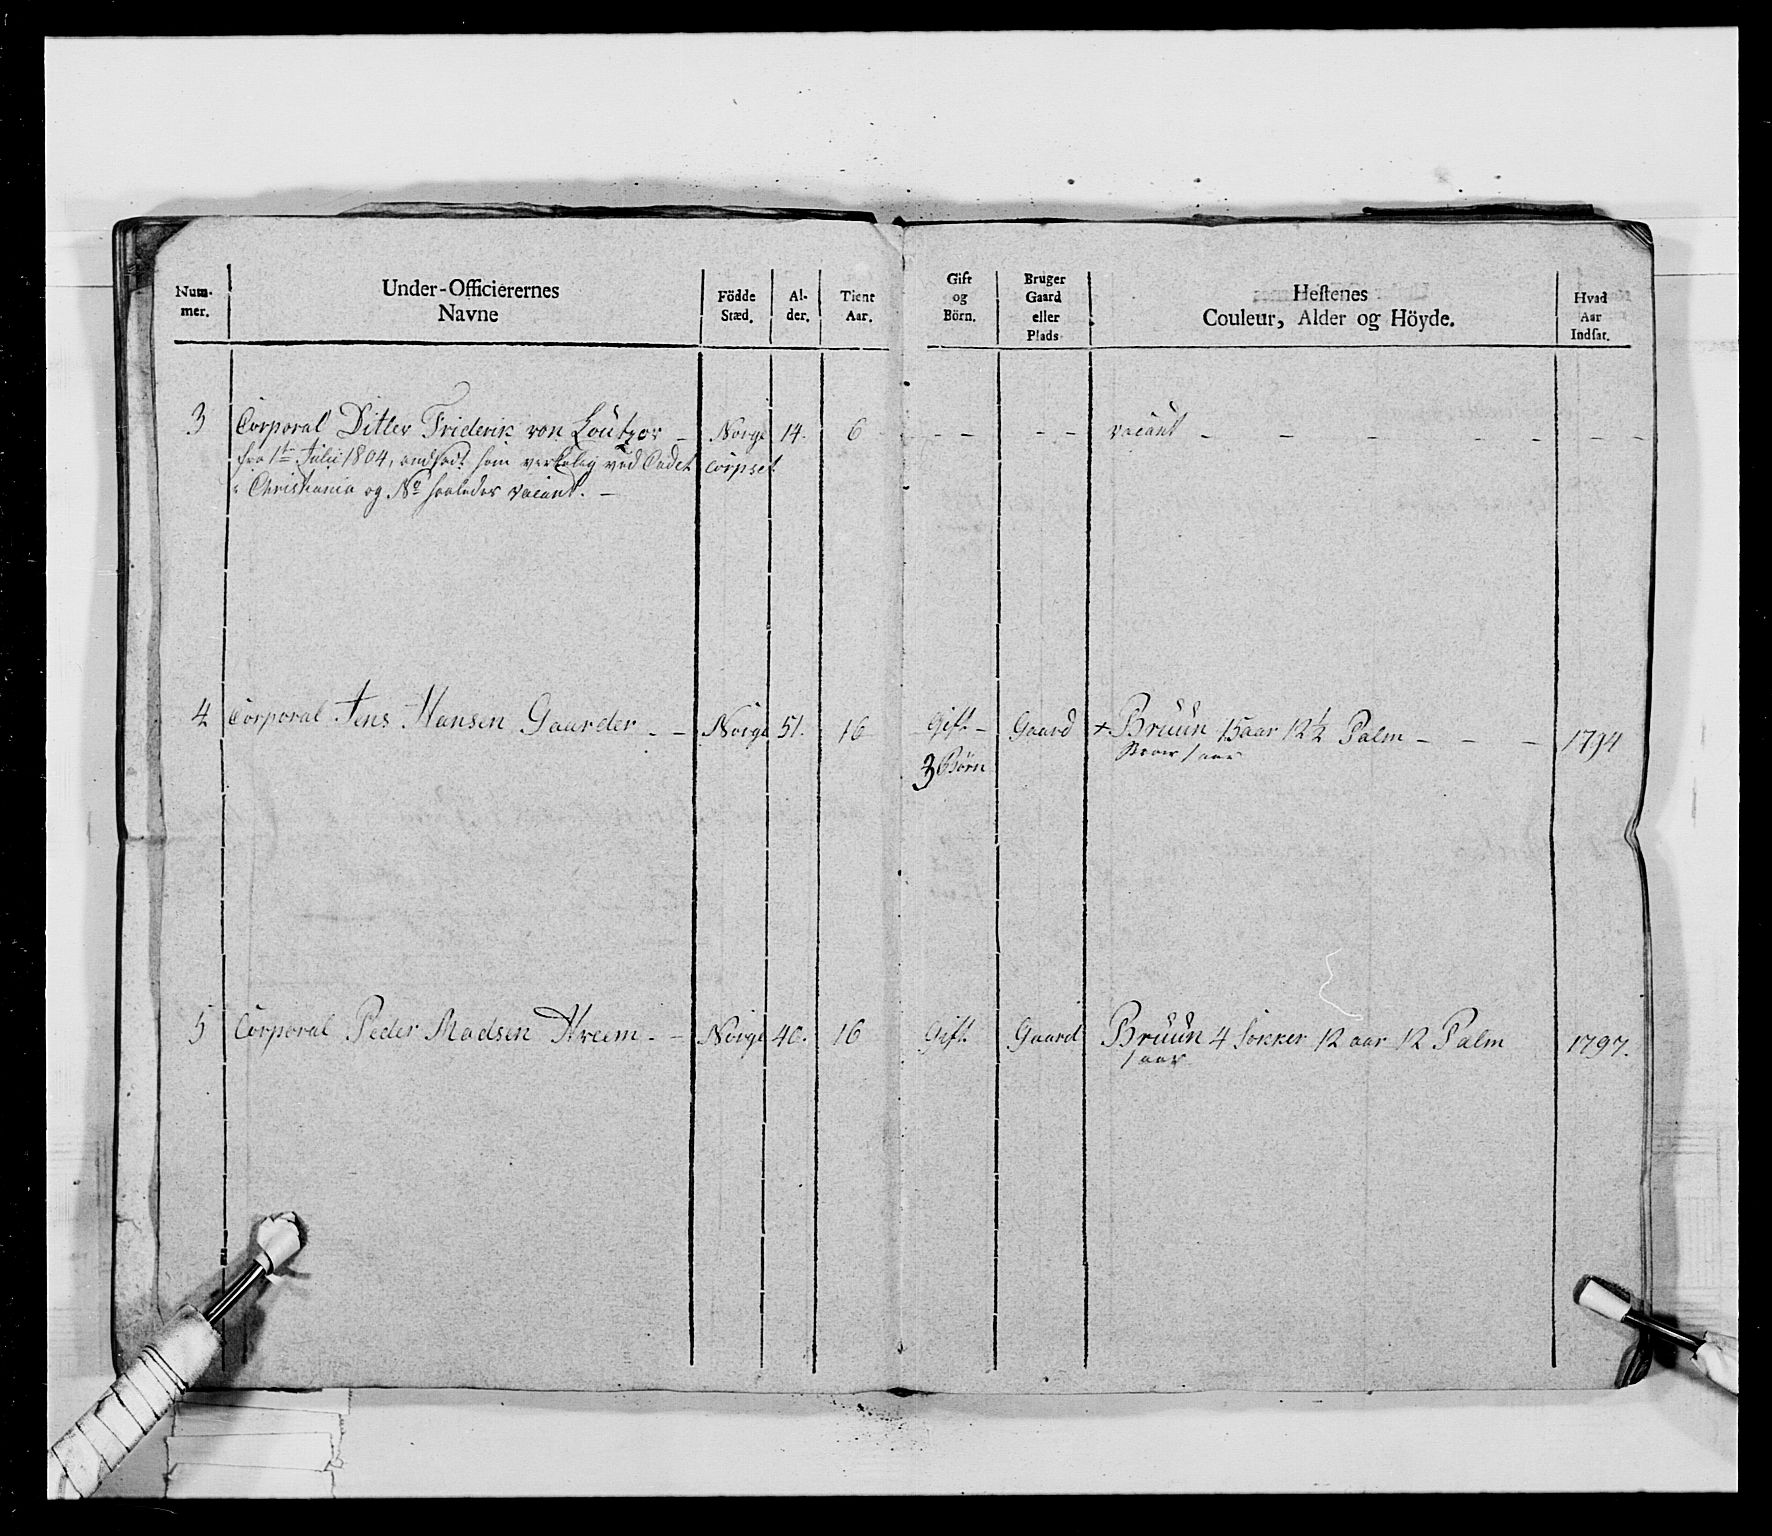 Num-mer. Under-Officierernes Navne Födde Stæd. Al-der. Tient Aar. Gift og Börn. Bruger Gaard eller Plads Hestenes Couleur, Alder og Höyde. Hvad Aar Indsat.
3 Corporal Ditlev Friderik von - Norge 14. 6 - - - - vacant - - - - - - -
fra 1te Julii 1804, ansat som virkelig ved Cadet Corpset
i Christiania og No saaledes vacant. -
4 Corporal Jens Hansen Gaarder - - Norge 51. 16 Gift - Gaard + Bruun 15 aar 12½ Palm - - - 1794
3 Börn
5 Corporal Peder Madsen - - Norge 40. 16 Gift Gaard Bruun 4 Sokker 12 aar 12 Palm 1797.